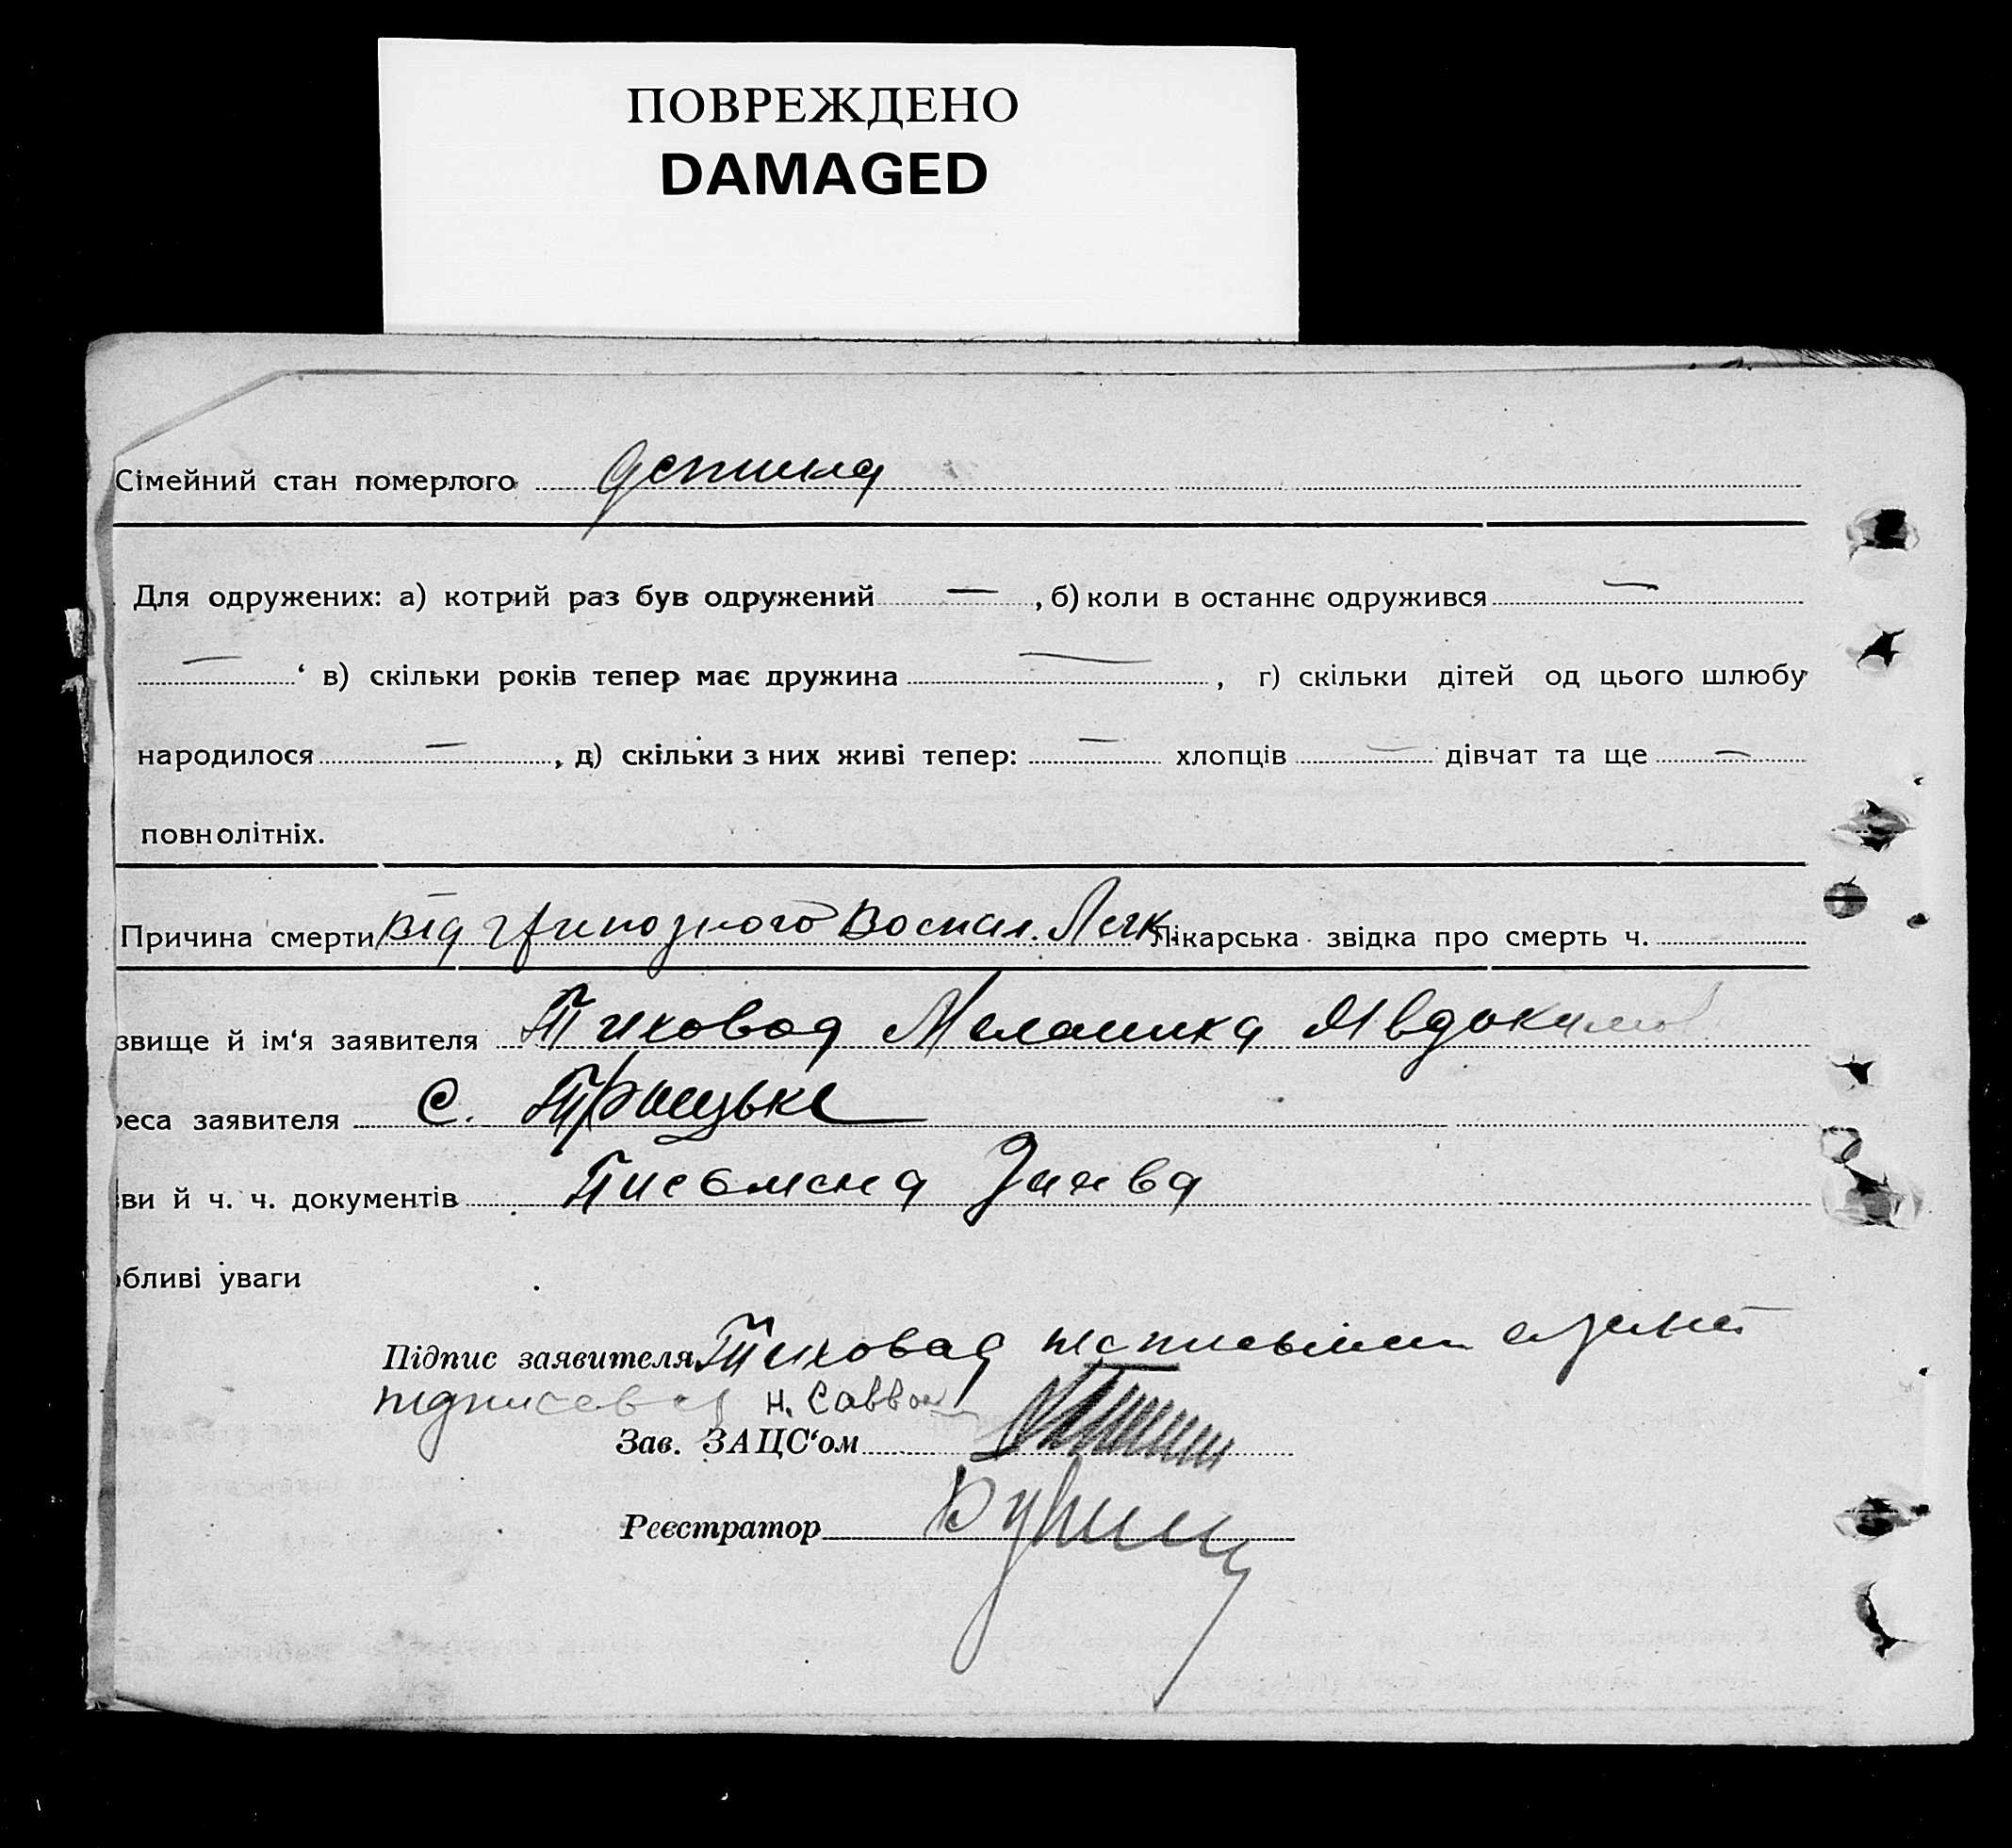 ПОВРЕЖДЕНО
DAMAGED
Сімейний стан померлого дитина
Для одружених: а) котрий раз був одружений — , б) коли в останнє одружився —
— ‘ в) скільки років тепер має дружина — , г) скільки дітей од цього шлюбу
народилося — , д) скільки з них живі тепер: — хлопців — дівчат та ще —
повнолітніх.
Причина смерти від грипозного Воспал. Легк. Лікарська звідка про смерть ч.
звище й ім‘я заявителя Тиховод Мелашка Явдоким
реса заявителя С. Троіцьке
зви й ч. ч. документів Письмена Заява
обливі уваги
Підпис заявителя Тиховод
підписався Н. Савво
Зав. ЗАЦС‘ом
Реєстратор